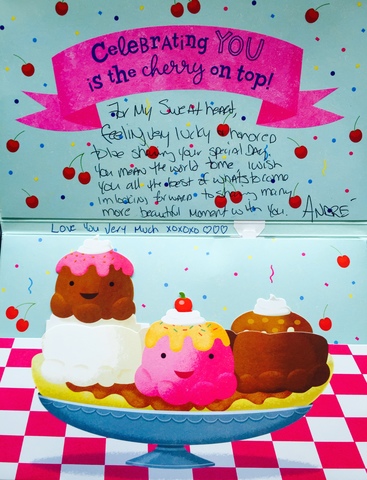 CELEBRATING YOU
is the cherry on top!
For My Sweetheart,
feeling very lucky & honored
to be sharing your special Day,
You mean the world to me. I wish
you all the best of whats to come
im looking forward to sharing many
more beautiful moment us with You. ANDRÉ
Love You Very Much xoxoxo ♡♡♡